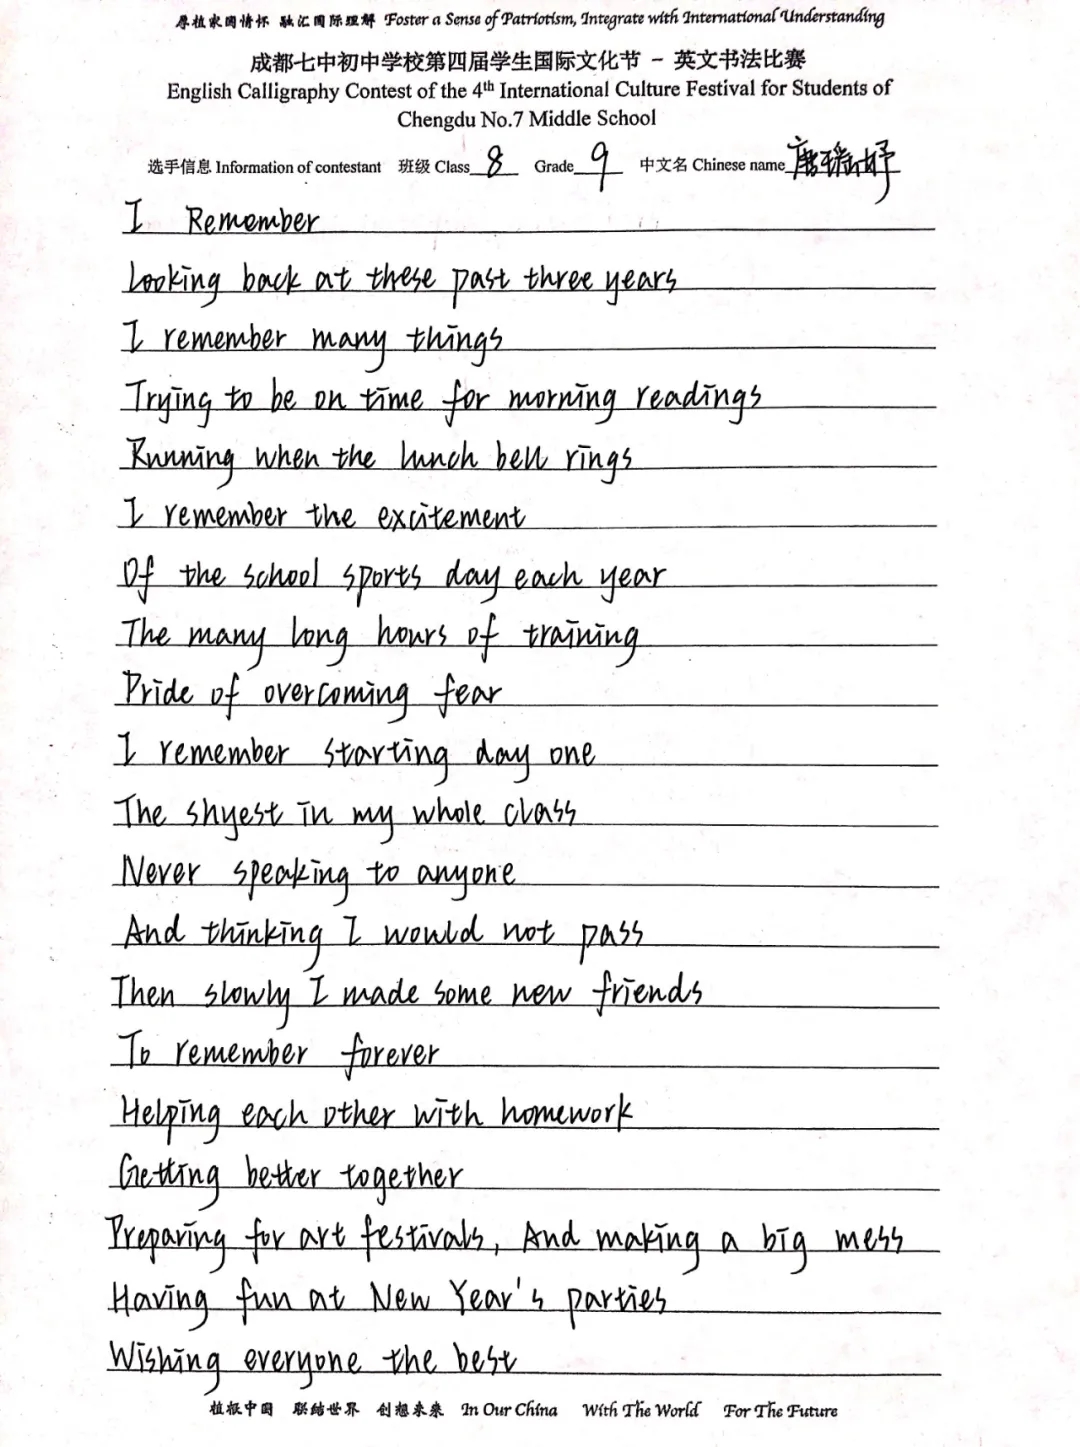 厚植家国情怀 融汇国际理解 Foster a Sense of Patriotism, Integrate with International Understanding
成都七中初中学校第四届学生国际文化节 - 英文书法比赛
English Calligraphy Contest of the 4th International Culture Festival for Students of
Chengdu No.7 Middle School
选手信息 Information of contestant 班级 Class 8 Grade 9 中文名 Chinese name 唐瑞妤
I Remember
Looking back at these past three years
I remember many things
Trying to be on time for morning readings
Running when the lunch bell rings
I remember the excitement
Of the school sports day each year
The many long hours of training
Pride of overcoming fear
I remember starting day one
The shyest in my whole class
Never speaking to anyone
And thinking I would not pass
Then slowly I made some new friends
To remember forever
Helping each other with homework
Getting better together
Preparing for art festivals, And making a big mess
Having fun at New Year's parties
Wishing everyone the best
植根中国 联结世界 创想未来 In Our China With The World For The Future